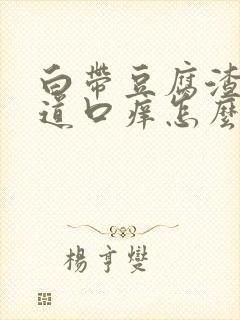 白帶豆腐渣
道口痒怎麽
楊亨燮